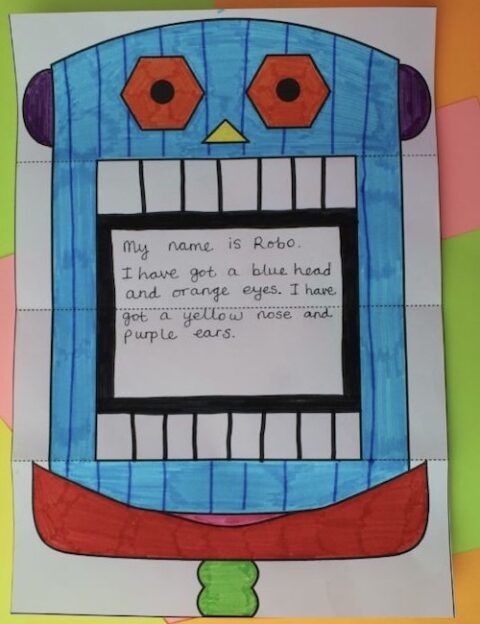 My name is Robo.
I have got a blue head
and orange eyes. I have
got a yellow nose and
purple ears.